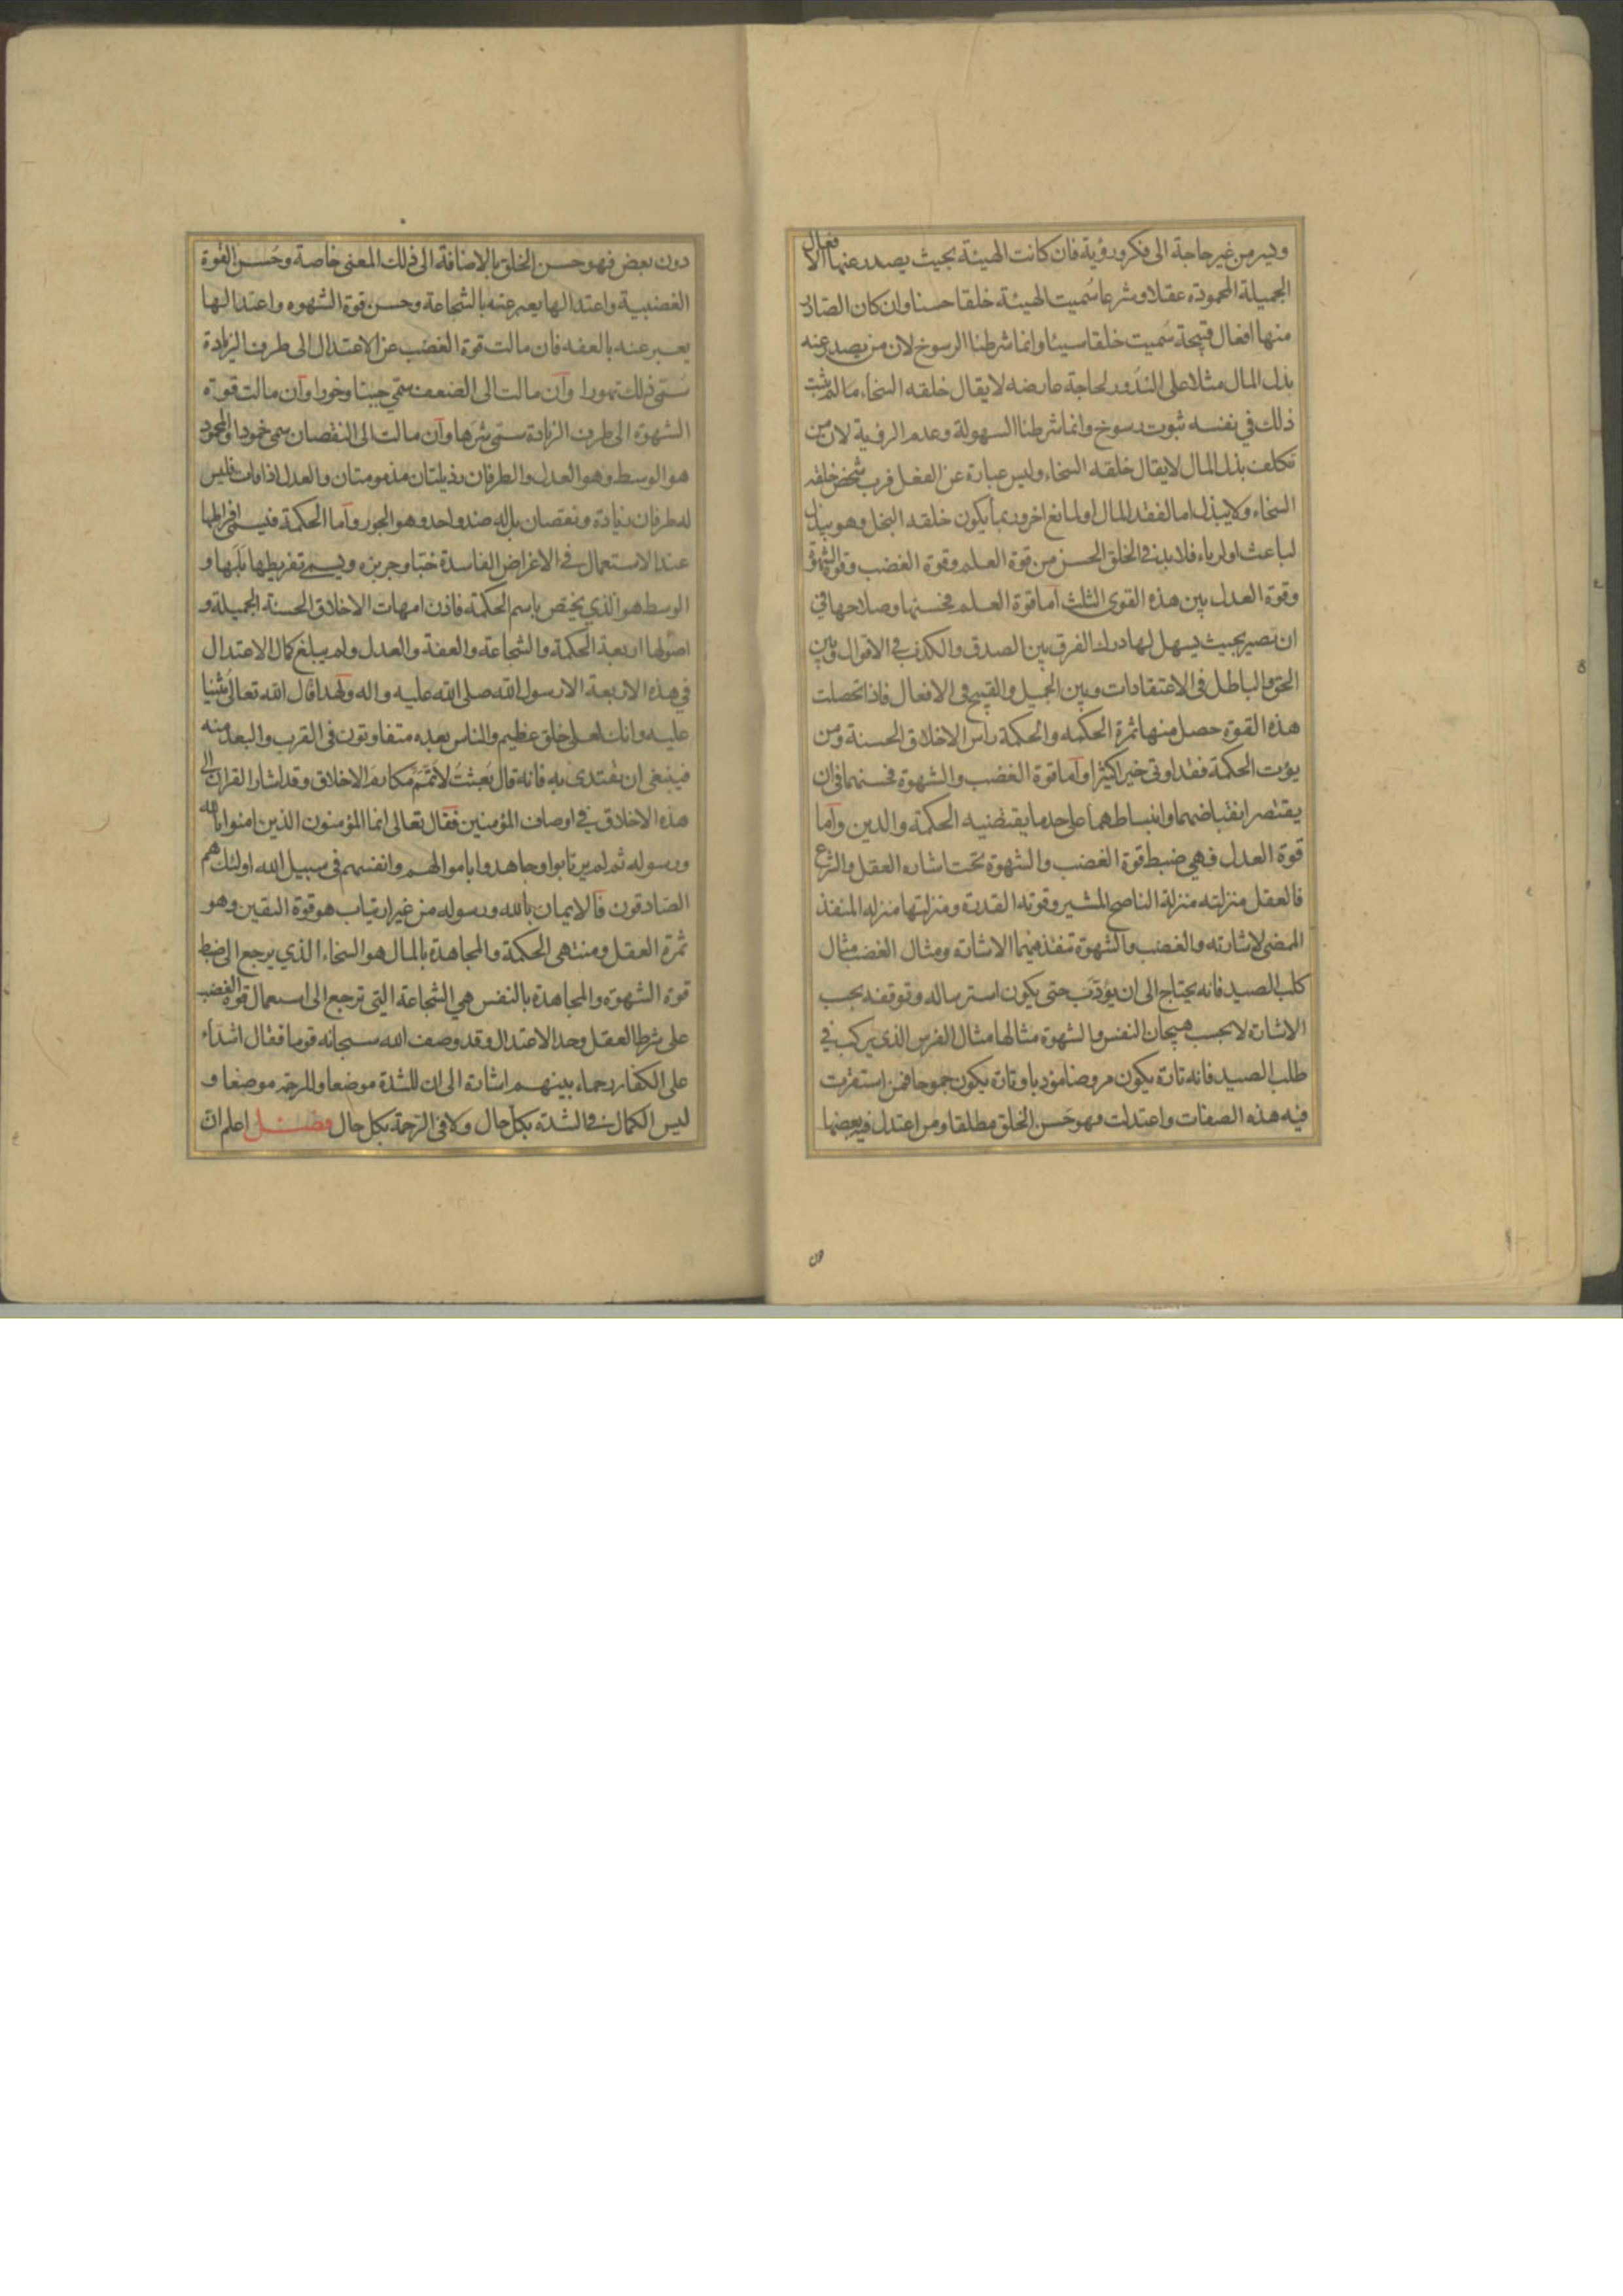 ويسر من غير حاجة الى فكر ورؤية فان كانت الهيئة بحيث يصدر عنها الافعال
الجميلة المحمودة عقلا وشرعا سُميت الهيئة خلقا حسنا وان كان الصادر
منها افعال قبيحة سُميت خلقا سيئا وانما شرطنا الرسوخ لان من يصدر عنه
بذل المال مثلا على الندور لحاجة عارضه لا يقال خلقه السخاء ما لم يثبت
ذلك في نفسه ثبوت رسوخ وانما شرطنا السهولة وعدم الروية لان من
تكلف بذل المال لا يقال خلقه السخاء وليس عبارة عن الفعل فرب شخص خلقه
السخاء ولا يبذل اما لفقد المال او لمانع اخر وربما يكون خلقه البخل وهو يبذل
لباعث او لرياء فلا بد في الخلق الحسن من قوة العلم وقوة الغضب وقوة الشهوة
وقوة العدل بين هذه القوى الثلث اما قوة العلم فحسنها وصلاحها في
ان تصير بحيث يسهل لها درك الفرق بين الصدق والكذب في الاقوال وبين
الحق والباطل في الاعتقادات وبين الجميل والقبيح في الافعال فاذا تحصلت
هذه القوة حصل منها ثمرة الحكمه والحكمة رأس الاخلاق الحسنة ومن
يؤت الحكمة فقد اوتى خيرا كثيرا واما قوة الغضب والشهوة فحسنهما في ان
يقتصر انقباضهما وانبساطهما على حد ما يقتضيه الحكمة والدين واما
قوة العدل فهي ضبط قوة الغضب والشهوة تحت اشاره العقل والشرع
فالعقل منزلته منزلة الناصح المشير وقوته القدرة ومنزلتها منزله المنفذ
الممضى لاشارته والغضب والشهوة تنفذ فيهما الاشارة ومثال الغضب مثال
كلب الصيد فانه يحتاج الى ان يؤدَّب حتى يكون استرساله وتوقفه بحسب
الاشارة لا بحسب هيجان النفس والشهوة مثالها مثال الفرس الذى يركب في
طلب الصيد فانه تارة يكون مروضا مؤدبا وتارة يكون جموحا فمن استقرت
فيه هذه الصفات واعتدلت فهو حَسن الخلق مطلقا ومن اعتدل فيه بعضها
دون
دون بعض فهو حسن الخلق بالاضافة الى ذلك المعنى خاصة وحُسن القوة
الغضبية واعتدالها يعبر عنه بالشجاعة وحسن قوة الشهوه واعتدالها
يعبر عنه بالعفه فان مالت قوة الغضب عن الاعتدال الى طرف الزيادة
سُمّى ذلك تهورا وآن مالت الى الضعف سمّي جبنا وخورا وآن مالت قوة
الشهوة الى طرف الزيادة سمّى شرَها وآن مالت الى النقصان سمى خمودا والمحمود
هو الوسط وهو العدل والطرفان رذيلتان مذمومتان والعدل اذا فات فليس
له طرفان زيادة ونقصان بل له ضد واحد وهو الجور وآما الحكمة فيسمى افراطها
عند الاستعمال في الاغراض الفاسدة خبثا وجربزه ويسمى تفريطها بَلَها و
الوسط هو الذي يختص باسم الحكمة فاذن امهات الاخلاق الحسنة الجميلة و
اصولها اربعة الحكمة والشجاعة والعفة والعدل ولم يبلغ كمال الاعتدال
في هذه الاربعة الا رسول الله صلى الله عليه واله ولهذا قال الله تعالى مثنيا
عليه وانك لعلى خلق عظيم والناس بعده متفاوتون في القرب والبعد منه
فينبغى ان يقتدى به فانه قال بُعثتُ لاُتمّمَ مكارمَ الاخلاق وقد اشار القران الى
هذه الاخلاق في اوصاف المؤمنين فقال تعالى انما المؤمنون الذين امنوا بالله
ورسوله ثم لم يرتابوا وجاهدوا باموالهم وانفسهم في سبيل الله اولئك هم
الصادقون فآلايمان بالله ورسوله من غير ارتياب هو قوة اليقين وهو
ثمرة العقل ومنتهى الحكمة والمجاهدة بالمال هو السخاء الذي يرجع الى ضبط
قوة الشهوة والمجاهدة بالنفس هي الشجاعة التي ترجع الى استعمال قوة الغضب
على شرط العقل وحد الاعتدال وقد وصف الله سبحانه قوما فقال اشدآء
على الكفار رحماء بينهم اشارة الى ان للشدة موضعا وللرحمة موضعا و
ليس الكمال في الشدة بكل حال ولا في الرحمة بكل حال فصل اعلم ان